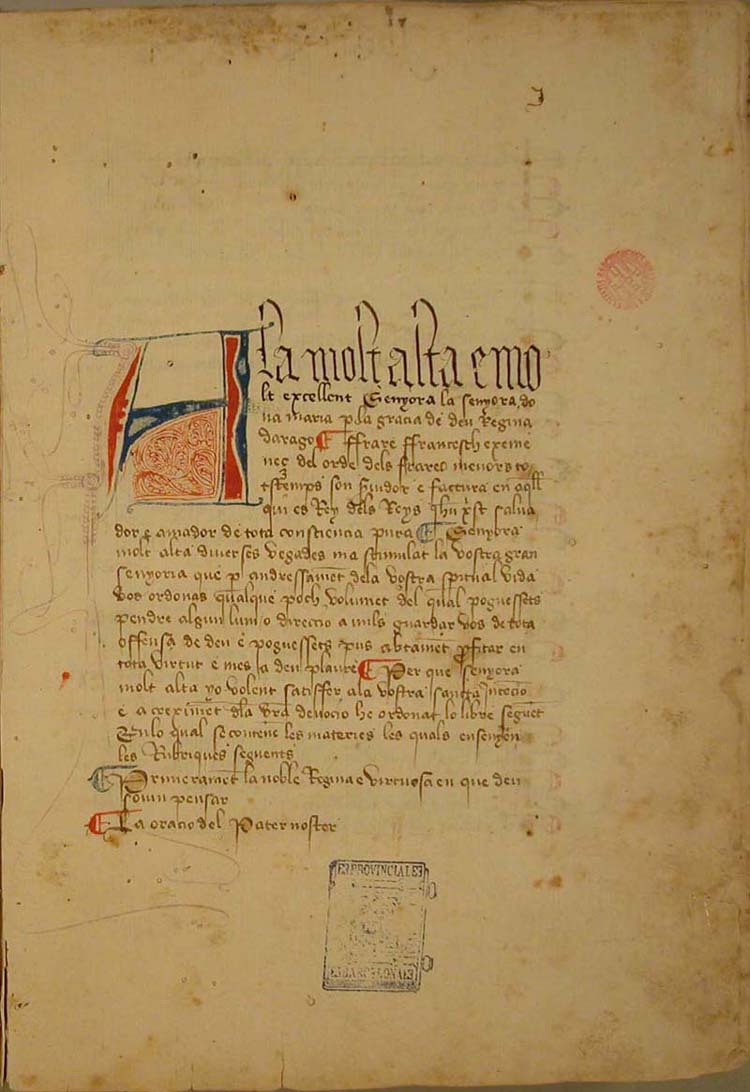 I
A la molt alta e mo
lt excellent Senyora la senyora do
na maria p la gracia de deu Regina
darago ffrare ffrancesch exeme
neç del orde dels frares menors to
stemps son Seruidor e factura en aqll
qui es Rey dels Reys Jhu xst salua
dor e amador de tota consciencia pura Senyora
molt alta diuerses vegades ma stimulat la vostra gran
senyoria que p andressamet dela vostra spiritual vida
vos ordonas qualque poch volumet del qual poguessets
pendre algun lum o direccio a mils guardar vos de tota
offensa de deu e poguessets pus abtamet profitar en
tota virtut e mes a deu plaure Per que senyora
molt alta yo volent satisfer ala vostra sancta intecio
e a coreximet dla vra deuocio he ordonat lo libre seguet
En lo qual se contene les materies les quals ensenyen
les Rubriques seguents
Primerament la noble Regina e virtuosa en que deu
souin pensar
La oracio del Pater noster
PROVINCIAL
BARCELONA